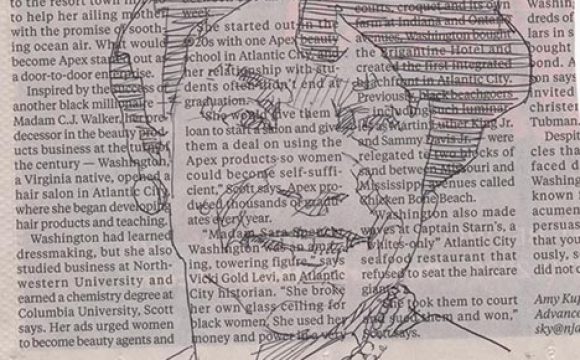 to the resort town
to help her ailing mother
with the promise of sooth-
ing ocean air. What would
become Apex started out as
a door-to-door enterprise.
Inspired by the success of
another black millionaire
Madam C.J. Walker, her pre-
decessor in the beauty prod-
ucts business at the turn of
the century — Washington,
a Virginia native, opened a
hair salon in Atlantic City
where she began developing
hair products and teaching.
Washington had learned
dressmaking, but she also
studied business at North-
western University and
earned a chemistry degree at
Columbia University, Scott
says. Her ads urged women
to become beauty agents and
week.
She started out in the
1920s with one Apex beauty
school in Atlantic City, and
her relationship with stu-
dents often didn't end at
graduation.
"She would give them a
loan to start a salon and give
them a deal on using the
Apex products so women
could become self-suffi-
cient," Scott says. Apex pro-
duced thousands of gradu-
ates every year.
"Madam Sara Spencer
Washington was an impos-
ing, towering figure," says
Vicki Gold Levi, an Atlantic
City historian. "She broke
her own glass ceiling for
black women. She used her
money and power in a very
courts, croquet and its own
farm at Indiana and Ontario
avenues. Washington bought
the Brigantine Hotel and
created the first integrated
beachfront in Atlantic City.
Previously, black beachgoers
— including such luminar-
ies as Martin Luther King Jr.
and Sammy Davis Jr. — were
relegated to two blocks of
sand between Missouri and
Mississippi avenues called
Chicken Bone Beach.
Washington also made
waves at Captain Starn's, a
"whites-only" Atlantic City
seafood restaurant that
refused to seat the haircare
giant.
"She took them to court
and sued them and won,"
Scott says.
Washin
dreds of
lars in s
bought
bond. A
on says
invited
christe
Tubman.
Despit
cles tha
faced d
Washing
known
acumen
persuas
that you
ously, s
did not
Amy Ku
Advance
sky@nj